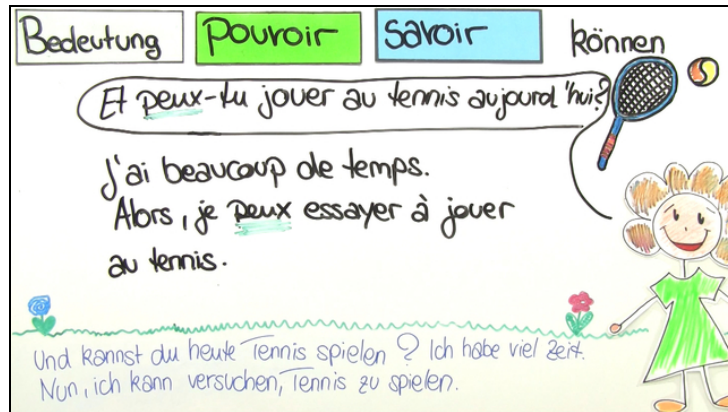 Bedeutung pouvoir savoir können
Et peux-tu jouer au tennis aujourd'hui?
J'ai beaucoup de temps.
Alors, je peux essayer à jouer
au tennis.
Und kannst du heute Tennis spielen? Ich habe viel Zeit.
Nun, ich kann versuchen, Tennis zu spielen.